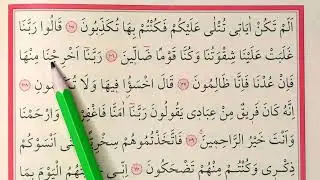 اَلَمْ تَكُنْ اٰيَات۪ي تُتْلٰى عَلَيْكُمْ فَكُنْتُمْ بِهَا تُكَذِّبُونَ ﴿١٠٥﴾ قَالُوا رَبَّنَا
غَلَبَتْ عَلَيْنَا شِقْوَتُنَا وَكُنَّا قَوْمًا ضَٓالّ۪ينَ ﴿١٠٦﴾ رَبَّنَٓا اَخْرِجْنَا مِنْهَا
فَاِنْ عُدْنَا فَاِنَّا ظَالِمُونَ ﴿١٠٧﴾ قَالَ اخْسَؤُ۫ا ف۪يهَا وَلَا تُكَلِّمُونِ ﴿١٠٨﴾
اِنَّهُ كَانَ فَر۪يقٌ مِنْ عِبَاد۪ي يَقُولُونَ رَبَّنَٓا اٰمَنَّا فَاغْفِرْ لَنَا وَارْحَمْنَا
وَاَنْتَ خَيْرُ الرَّاحِم۪ينَ ﴿١٠٩﴾ فَاتَّخَذْتُمُوهُمْ سِخْرِيًّا حَتّٰٓى اَنْسَوْكُمْ
ذِكْر۪ي وَكُنْتُمْ مِنْهُمْ تَضْحَكُونَ ﴿١١٠﴾ اِنّ۪ي جَزَيْتُهُمُ الْيَوْمَ بِمَا